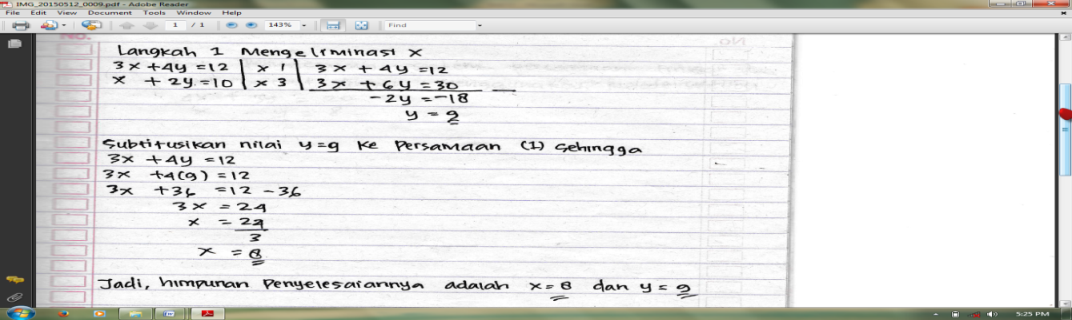 IMG_20150512_0009.pdf - Adobe Reader
File Edit View Document Tools Window Help
1 / 1 143% Find
Langkah 1 Mengeliminasi x
3x + 4y = 12 | x 1 | 3x + 4y = 12
x + 2y = 10 | x 3 | 3x + 6y = 30
-2y = -18
y = 9
Subtitusikan nilai y = 9 ke Persamaan (1) sehingga
3x + 4y = 12
3x + 4(9) = 12
3x + 36 = 12 - 36
3x = 24
x = 24
3
x = 8
Jadi, himpunan Penyelesaiannya adalah x = 8 dan y = 9
5:25 PM